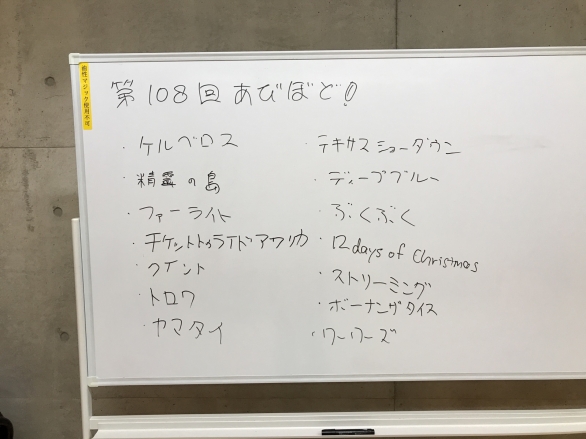 第108回 あびぼど!
・ケルベロス
・精霊の島
・ファーライト
・チケットトゥライドアフリカ
・クイント
・トロワ
・ヤマタイ
・テキサスショーダウン
・ディープブルー
・ぶくぶく
・12 days of Christmas
・ストリーミング
・ボーナンザダイス
・ワーワーズ
油性マジック使用不可